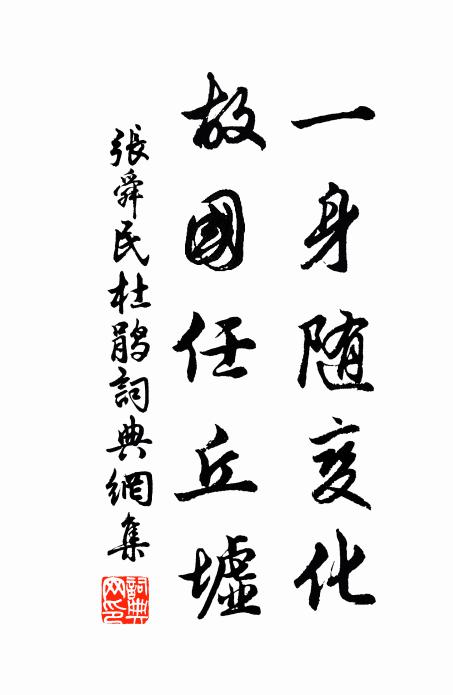 一身随变化
故國任丘墟
張舜民杜鹃詞典網集
詞典網印